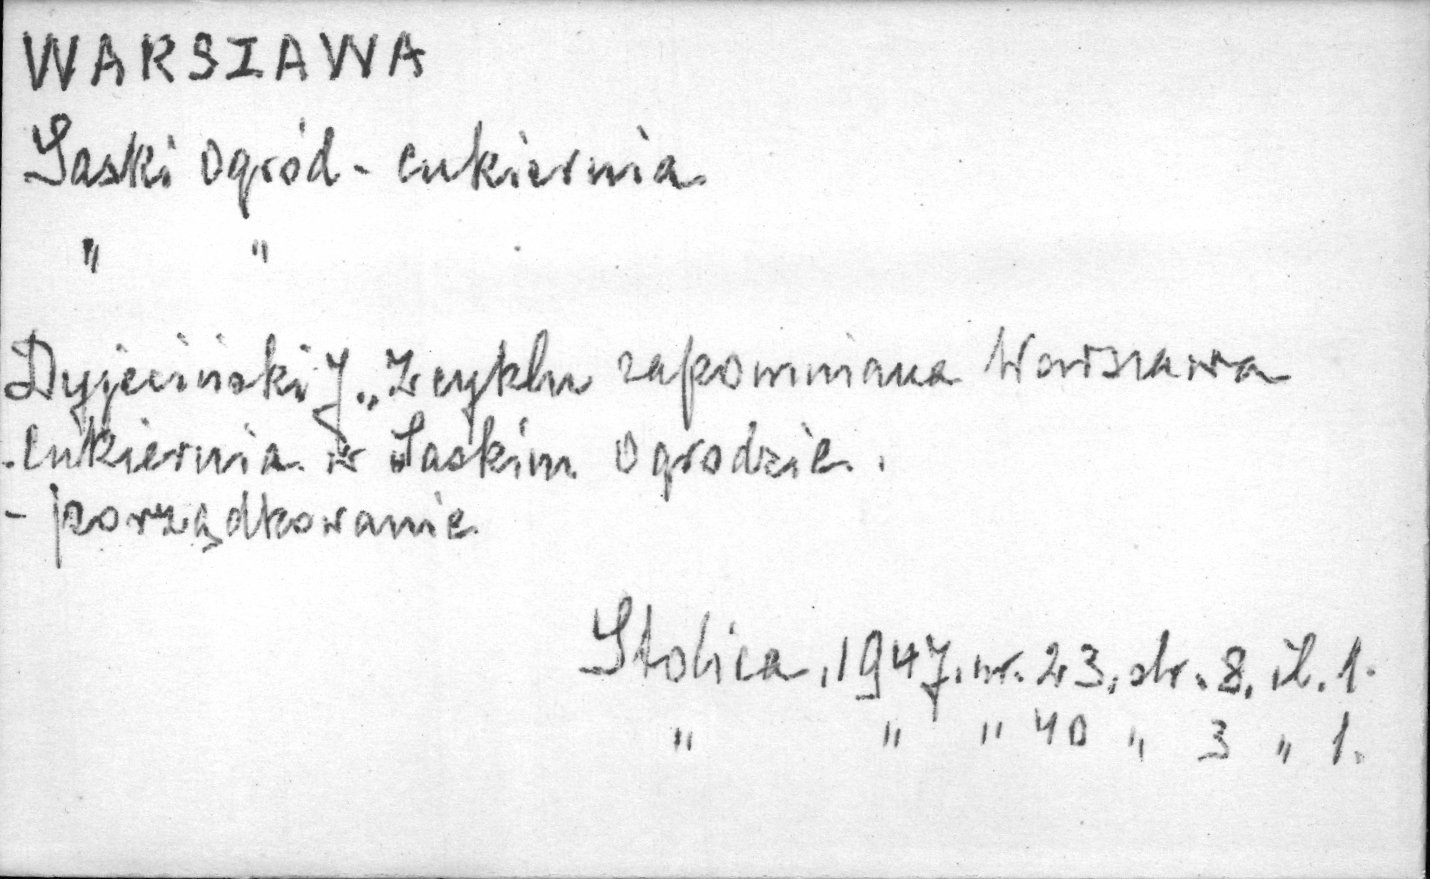 WARSZAWA
Saski Ogród - cukiernia
" "
Dyjeciński J. „Z cyklu zapomniana Warszawa
cukiernia w Saskim Ogrodzie.
- porządkowanie
Stolica, 1947, nr. 23, str. 8, il. 1.
" " " 40 " 3 " 1.